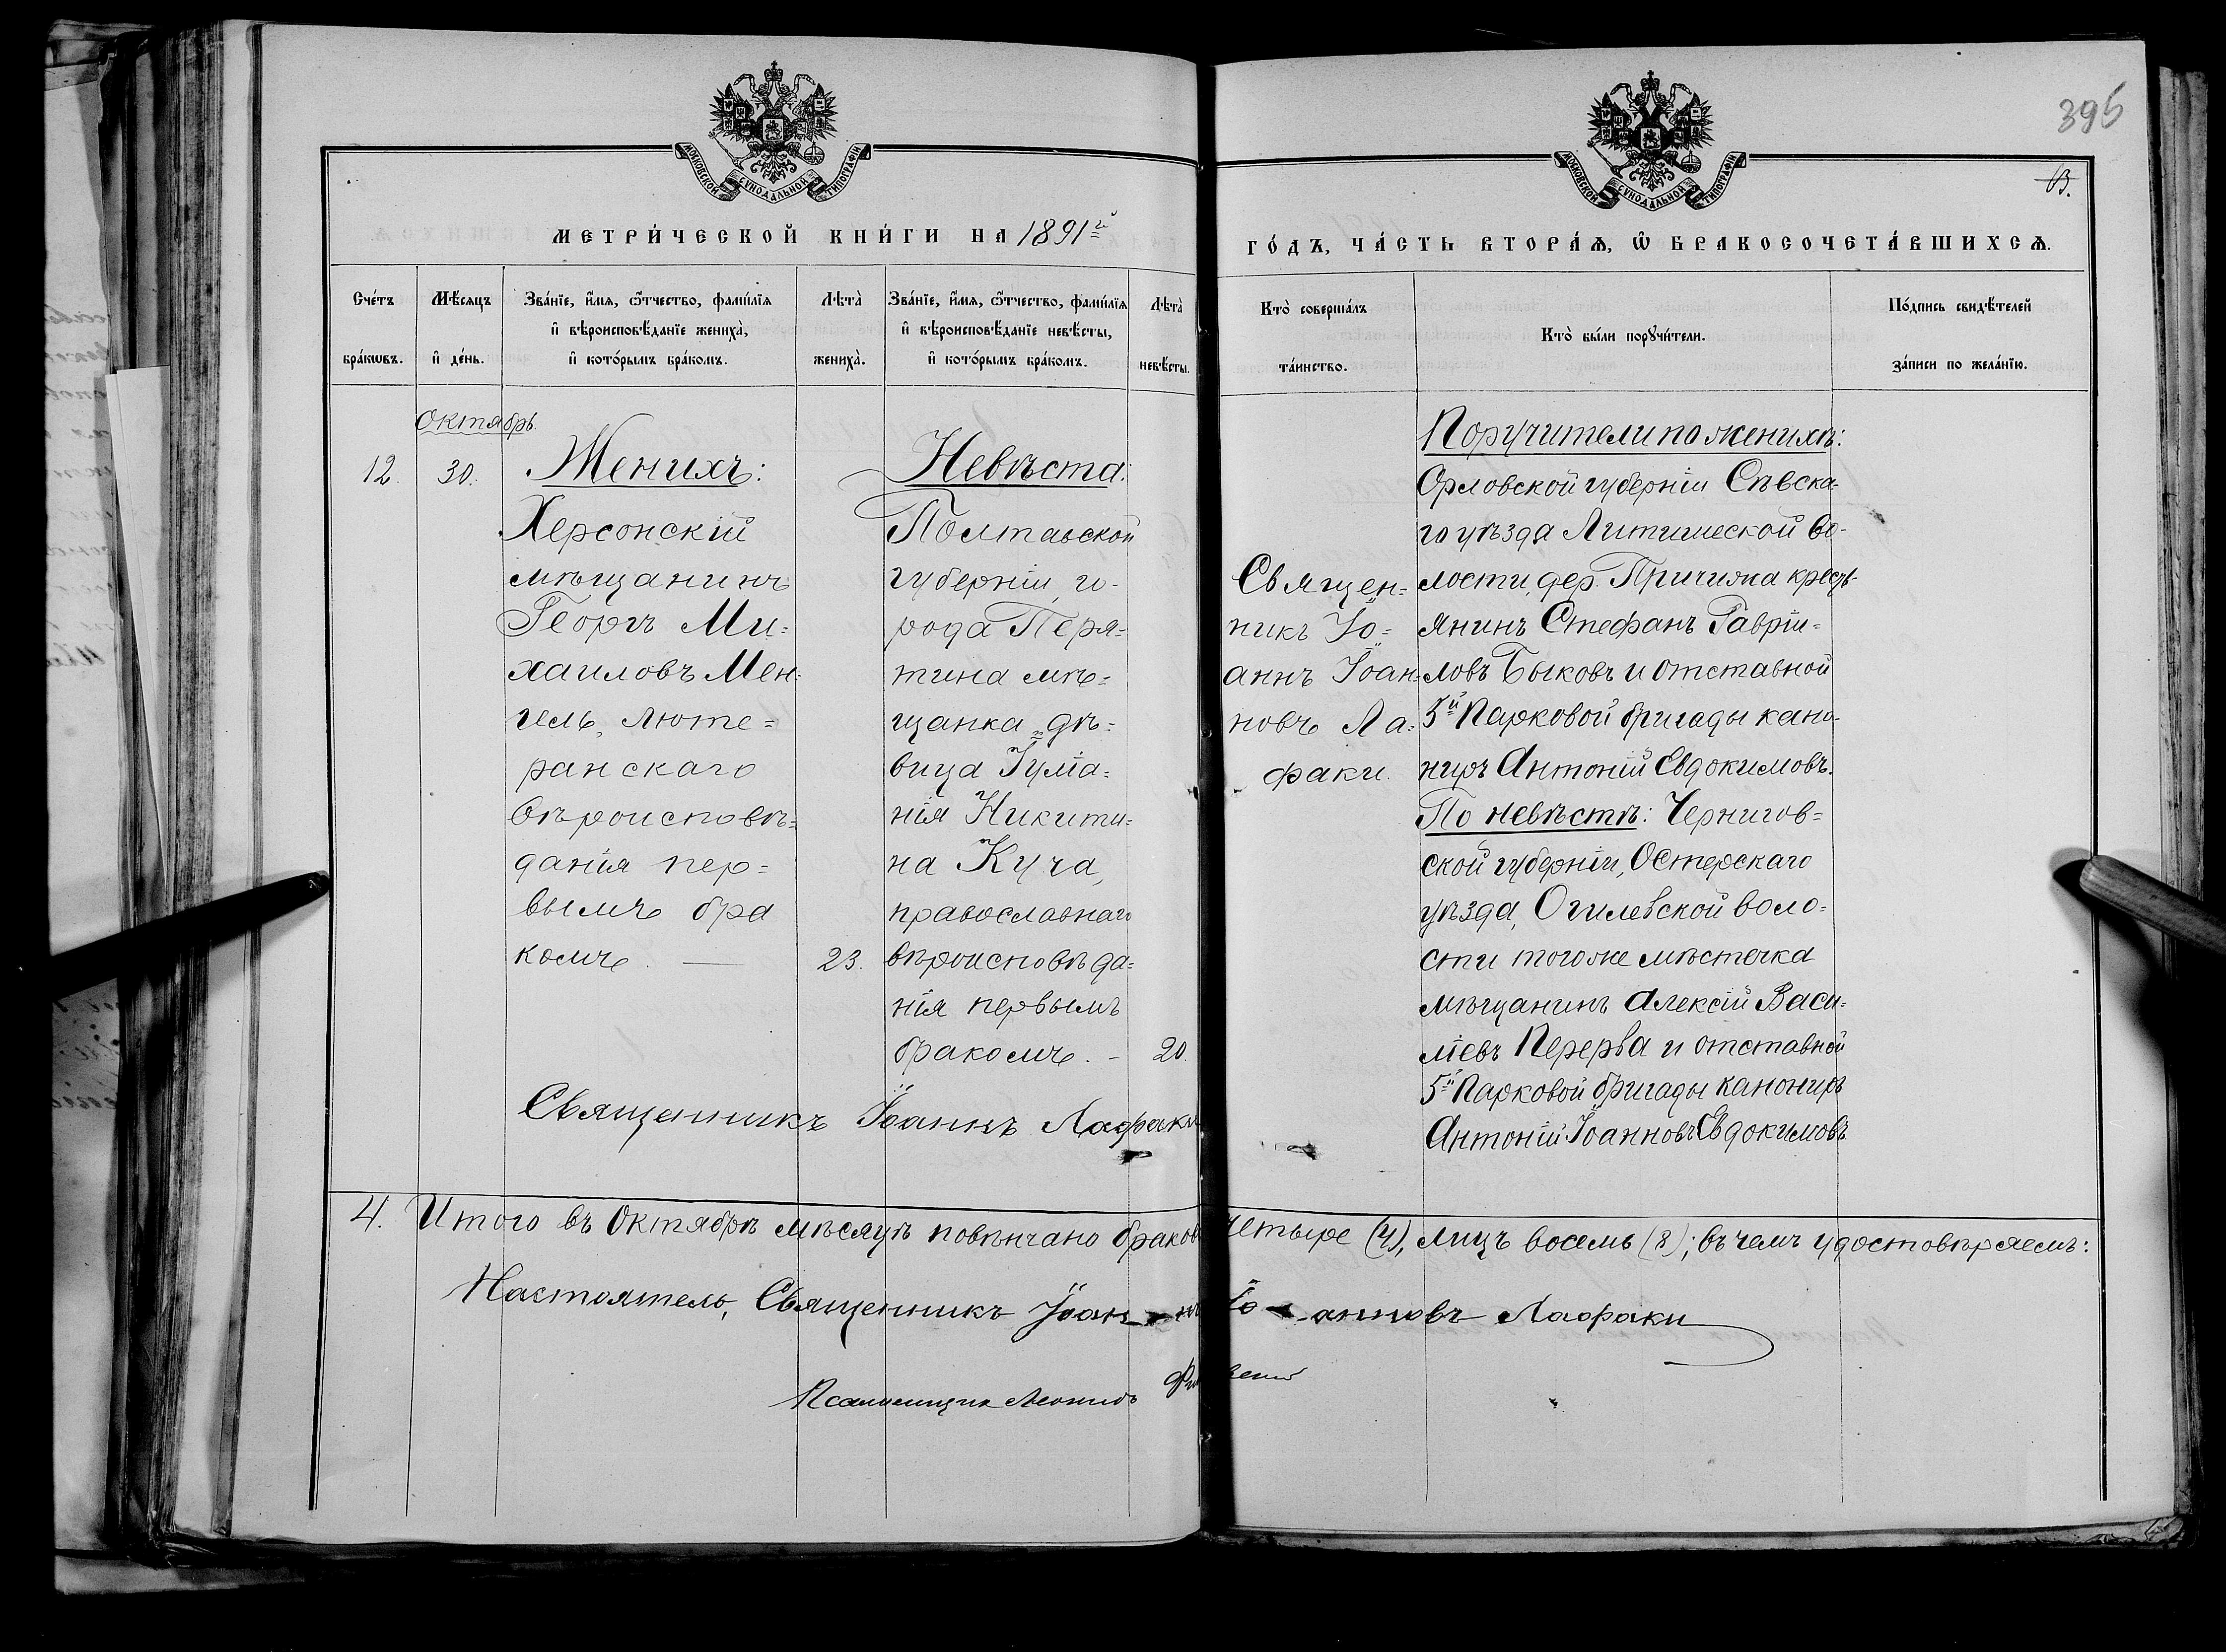 395
13.
МОСКОВСКОЙ СѴНОДАЛЬНОЙ ТИПОГРАФІИ
МОСКОВСКОЙ СѴНОДАЛЬНОЙ ТИПОГРАФІИ
МЕТРИ́ЧЕСКОЙ КНИ́ГИ НА 1891й
ГО́ДЪ, ЧА́СТЬ ВТОРА́Ѧ, Ѿ БРАКОСОЧЕТА́ВШИХСѦ.
Сче́тъ бра́кѡвъ.
Мѣ́сяцъ и҆ де́нь.
Зва́нїе, и҆́мѧ, ѻ҆́тчество, фами́лїѧ
и҆ вѣроисповѣ́данїе жениха̀,
и҆ кото́рымъ бра́комъ.
Лѣта̀ жениха̀.
Зва́нїе, и҆́мѧ, ѻ҆́тчество, фами́лїѧ
и҆ вѣроисповѣ́данїе невѣ́сты,
и҆ кото́рымъ бра́комъ.
Лѣта̀ невѣ́сты.
Кто̀ соверша́лъ
та́инство.
Кто̀ бы́ли порꙋчи́тели.
По́дпись свидѣ́телей
за́писи по жела́нїю.
12.
Октябрь.
30.
Женихъ:
Херсонскій
мѣщанинъ
Георгъ Ми=
хаиловъ Мен=
гель, люте=
ранскаго
вѣроисповѣ=
данія пер=
вымъ бра
комъ. —
23.
Невѣста:
Полтавской
губерніи, го-
рода Перя=
тина мѣ=
щанка, дѣ=
вица Іуліа=
нія Никити=
на Куча,
православнаго
вѣроисповѣда=
нія первымъ
бракомъ. –
20.
Священ=
никъ Іо=
аннъ Іоан=
новъ Ла=
факи.
Поручители по женихѣ:
Орловской губерніи Сѣвска-
го уѣзда Литижеской во-
лости, дер. Причижа кресть-
янинъ Стефанъ Гавріи=
ловъ Быковъ и отставной
5й Парковой бригады кано-
ниръ Антоній Евдокимовъ.
По невѣстѣ: Чернигов=
ской губерніи, Остерскаго
уѣзда, Огилевской воло=
сти тогоже мѣстечка
мѣщанинъ Алексій Васи=
ліевъ Перерва и отставной
5й Парковой бригады канониръ
Антоній Іоанновъ Евдокимовъ
Священникъ Іоаннъ Лафаки
4. Итого въ Октябрѣ мѣсяцѣ повѣнчано браковъ четыре (4), лицъ восемь (8); въ чемъ удостовѣряемъ:
Настоятель, Священникъ Іоаннъ Іоанновъ Лафаки
Псаломщикъ Леонидъ